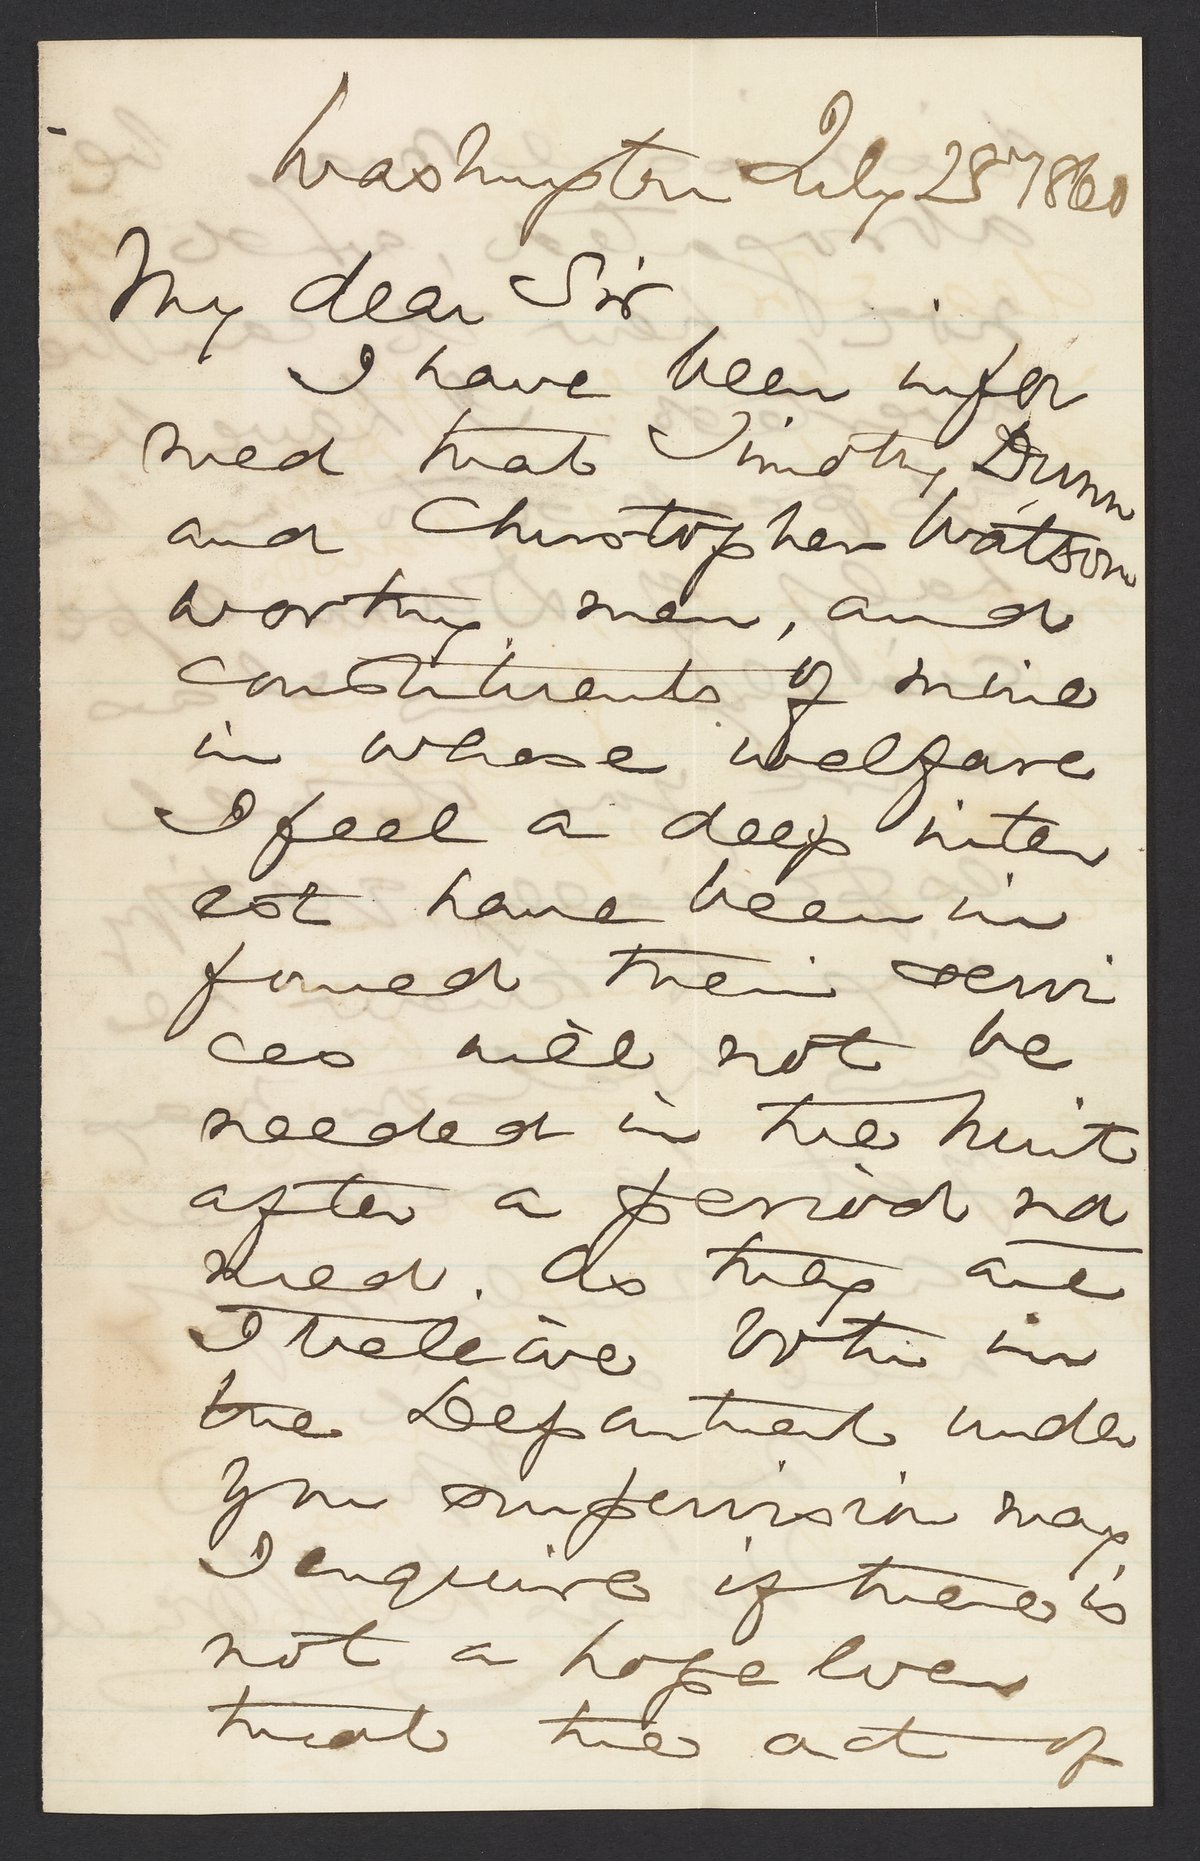 Washington July 28th 1860
My dear Sir
I have been infor
med that Timothy Dunn
and Christopher Watson
worthy men, and
constituents of mine
in whose welfare
I feel a deep inter
est have been in
formed their servi
ces will not be
needed in the
after a period na
med. As they are
I beleive both in
the Department under
your supervision may
I enquire if there is
not a hope even
that the act of